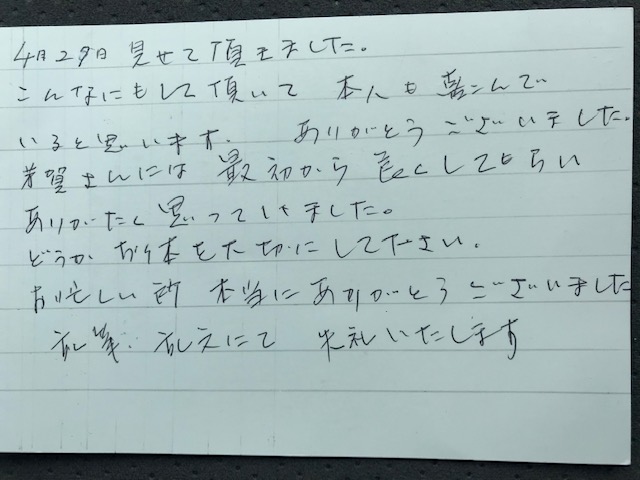 4月29日 見せて頂きました。
こんなにもして頂いて 本人も喜こんで
いると思います。 ありがとうございました。
芳賀さんには 最初から 良くしてもらい
ありがたく思っていました。
どうか お体を大切にして下さい。
お忙しい所 本当にありがとうございました
乱筆. 乱文にて 失礼いたします